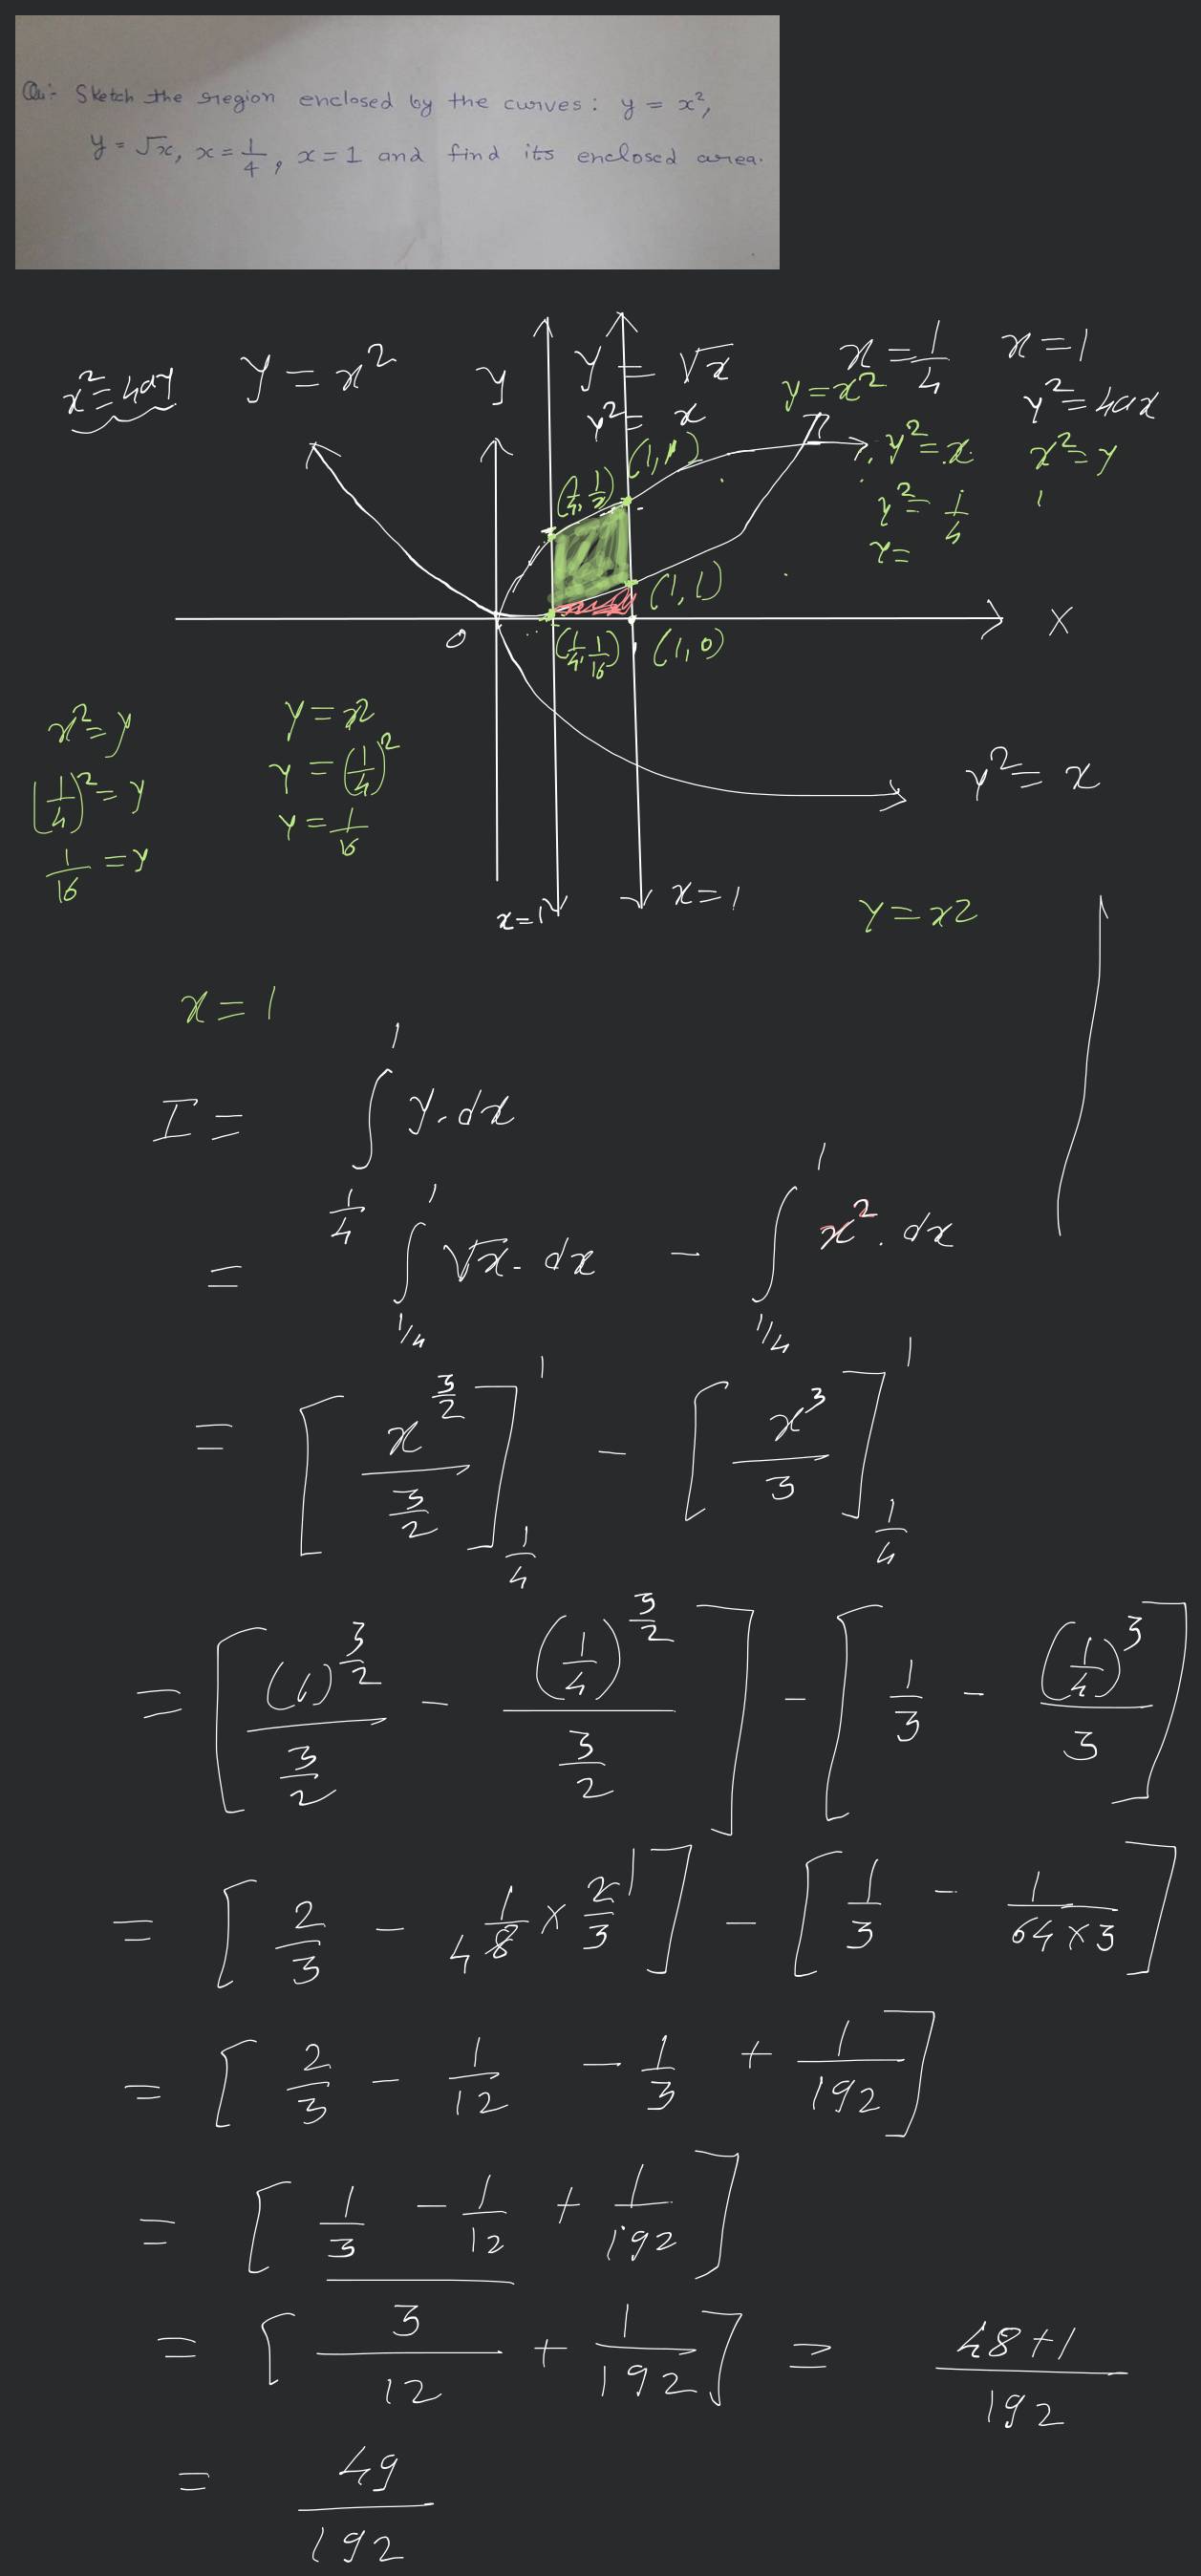 Qu:- Sketch the region enclosed by the curves: y = x²,
y = √x, x = 1/4, x = 1 and find its enclosed area.
x² = 4ay
y = x²
y
y = √x
x = 1/4
x = 1
y² = x
y = x²
y² = 4ax
y² = x
x² = y
y² = 1/4
y =
(1/4, 1/2)
(1, 1)
(1, 1)
0
(1/4, 1/16)
(1, 0)
X
x² = y
(1/4)² = y
1/16 = y
y = x2
y = (1/4)²
y = 1/16
y² = x
x = 1
x = 1
y = x2
x = 1
I = ∫_{1/4}^{1} y. dx
= ∫_{1/4}^{1} √x. dx - ∫_{1/4}^{1} x². dx
= [x^{3/2} / (3/2)]_{1/4}^{1} - [x³ / 3]_{1/4}^{1}
= [(1)^{3/2} / (3/2) - (1/4)^{3/2} / (3/2)] - [1/3 - (1/4)³ / 3]
= [2/3 - 4 1/8 × 2/3 1] - [1/3 - 1/(64 × 3)]
= [2/3 - 1/12 - 1/3 + 1/192]
= [1/3 - 1/12 + 1/192]
= [3/12 + 1/192] = (48+1)/192
= 49/192